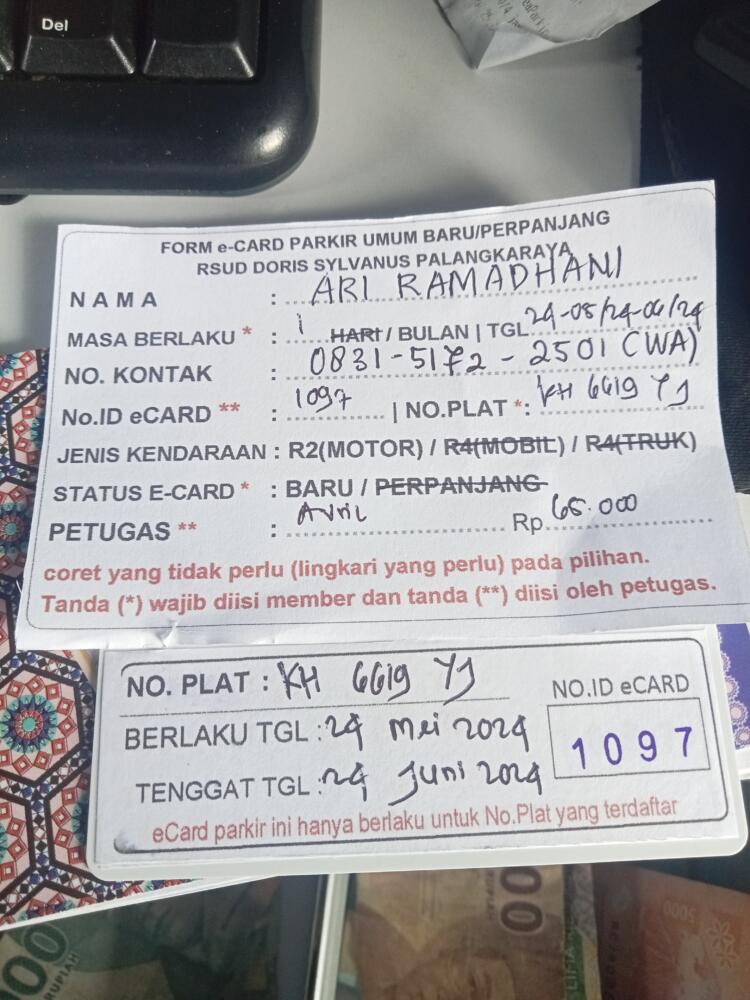 Del
FORM e-CARD PARKIR UMUM BARU/PERPANJANG
RSUD DORIS SYLVANUS PALANGKARAYA
NAMA : ARI RAMADHANI
MASA BERLAKU * : 1 HARI / BULAN | TGL 24-05/24-06/24
NO. KONTAK : 0831-5172-2501 (WA)
No.ID eCARD ** : 1097 | NO.PLAT *: KH 6619 YJ
JENIS KENDARAAN : R2(MOTOR) / R4(MOBIL) / R4(TRUK)
STATUS E-CARD * : BARU / PERPANJANG
PETUGAS ** : Avril Rp 65.000
coret yang tidak perlu (lingkari yang perlu) pada pilihan.
Tanda (*) wajib diisi member dan tanda (**) diisi oleh petugas.
NO. PLAT : KH 6619 YJ
NO.ID eCARD
BERLAKU TGL : 24 Mei 2024
1097
TENGGAT TGL : 24 Juni 2024
eCard parkir ini hanya berlaku untuk No.Plat yang terdaftar
00
5000
00
RUPIAH